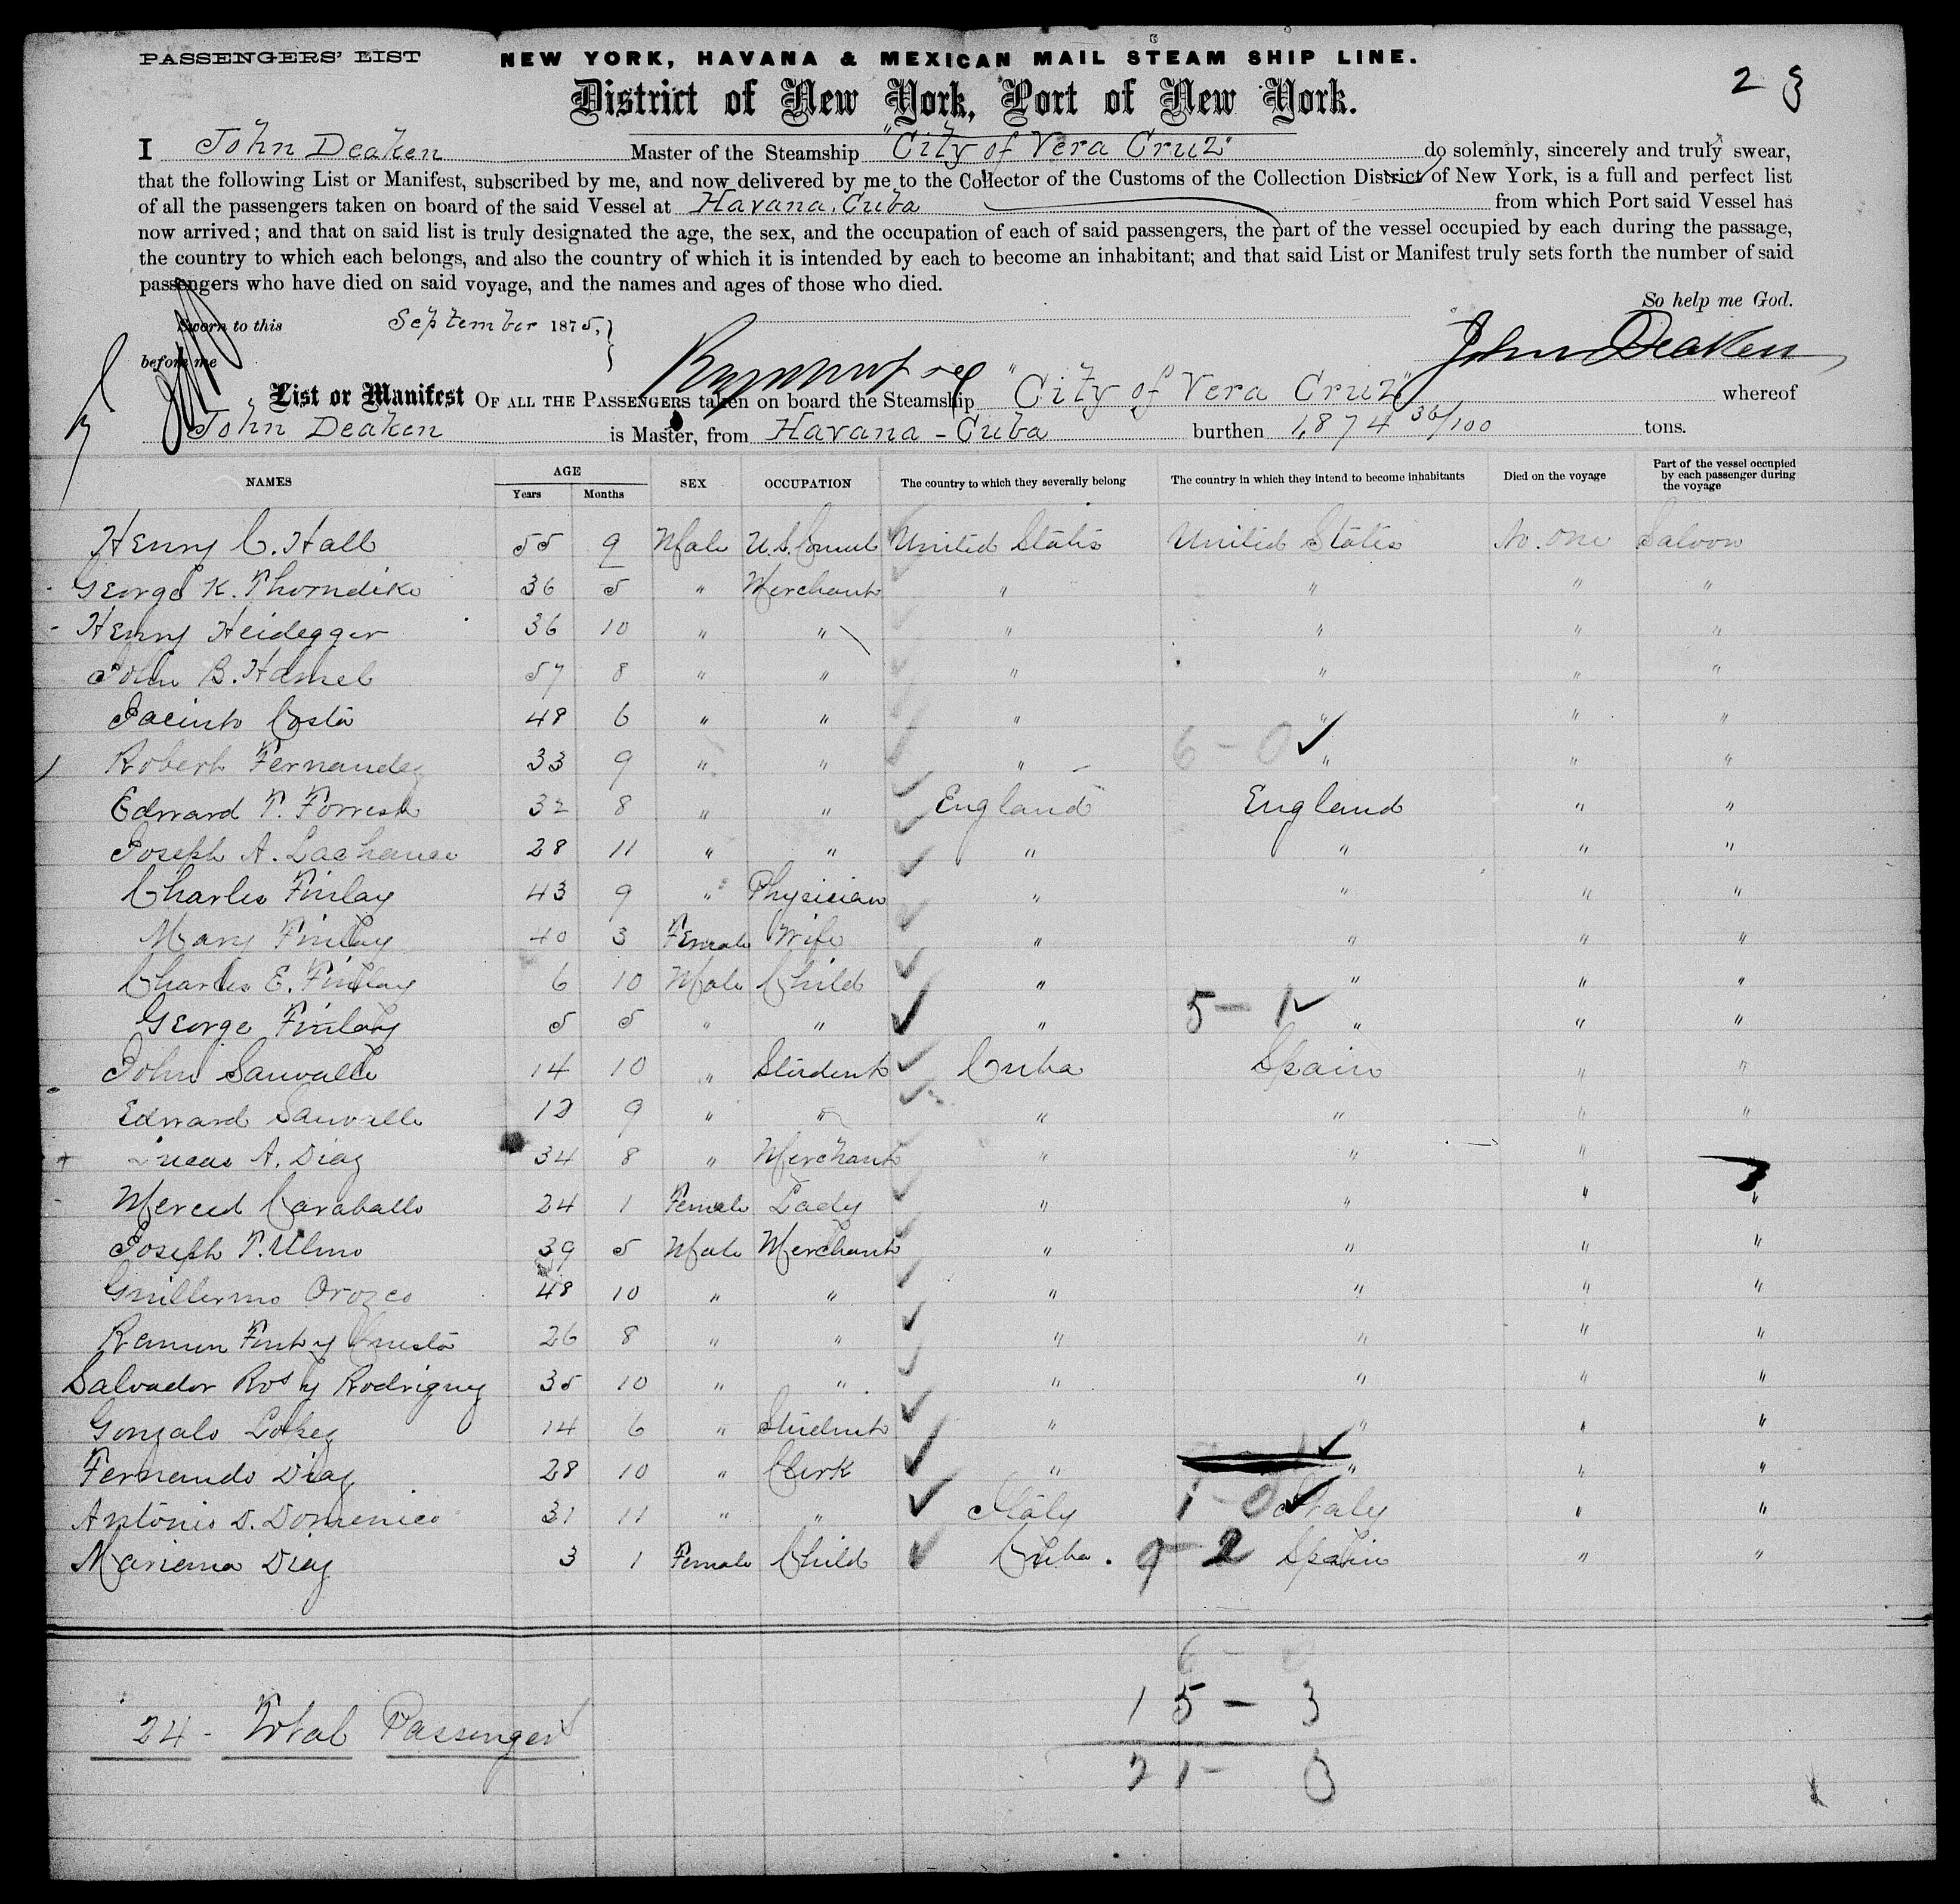 PASSENGERS' LIST
NEW YORK, HAVANA & MEXICAN MAIL STEAM SHIP LINE.
2 3
District of New York, Port of New York.
I John Deaken Master of the Steamship "City of Vera Cruz" do solemnly, sincerely and truly swear,
that the following List or Manifest, subscribed by me, and now delivered by me to the Collector of the Customs of the Collection District of New York, is a full and perfect list
of all the passengers taken on board of the said Vessel at Havana. Cuba from which Port said Vessel has
now arrived; and that on said list is truly designated the age, the sex, and the occupation of each of said passengers, the part of the vessel occupied by each during the passage,
the country to which each belongs, and also the country of which it is intended by each to become an inhabitant; and that said List or Manifest truly sets forth the number of said
passengers who have died on said voyage, and the names and ages of those who died.
So help me God.
Sworn to this September 1875,
John Deaken
before me
List or Manifest OF ALL THE PASSENGERS taken on board the Steamship "City of Vera Cruz" whereof
John Deaken is Master, from Havana - Cuba burthen 1,874 36/100 tons.
NAMES AGE Years Months SEX OCCUPATION The country to which they severally belong The country in which they intend to become inhabitants Died on the voyage Part of the vessel occupied by each passenger during the voyage
Henry C. Hall 55 9 Male U.S. Consul United States United States No. One Saloon
George K. Thorndike 36 5 " Merchant " " " "
Henry Heidegger 36 10 " " " " " "
John B. Hamel 57 8 " " " " " "
Jacinto Costa 48 6 " " " " " "
Robert Fernandez 33 9 " " " 6 - 0 " " "
Edward T. Forrest 32 8 " " England England " "
Joseph A. Lachance 28 11 " " " " " "
Charles Finlay 43 9 " Physician " " " "
Mary Finlay 40 3 Female Wife " " " "
Charles E. Finlay 6 10 Male Child " " " "
George Finlay 5 5 " " " 5 - 1 " " "
John Sauvalle 14 10 " Student Cuba Spain " "
Edward Sauvalle 12 9 " " " " " "
Lucas A. Diaz 34 8 " Merchant " " " "
Merced Caraballo 24 1 Female Lady " " " "
Joseph T. Ulmo 39 5 Male Merchant " " " "
Guillermo Orozco 48 10 " " " " " "
Ramon Font y Cuesta 26 8 " " " " " "
Salvador Ros y Rodriguez 35 10 " " " " " "
Gonzalo Lopez 14 6 " Student " " " "
Fernando Diaz 28 10 " Clerk " " " "
Antonio D. Domenico 31 11 " " Italy 1 - 0 Italy " "
Mariana Diaz 3 1 Female Child Cuba. 9 - 2 Spain " "
6 - 0
15 - 3
24 - Total Passengers
21 - 3